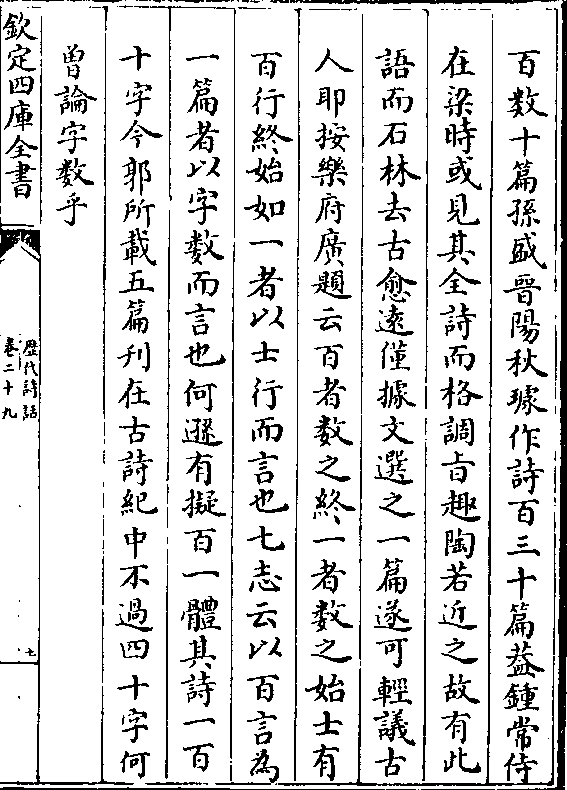 百数十篇孫盛晉陽秋璩作詩百三十篇葢鍾常侍
在梁時或見其全詩而格調旨趣陶若近之故有此
語而石林去古愈遠僅據文選之一篇遂可輕議古
人耶按樂府廣題云百者數之終一者數之始士有
百行終始如一者以士行而言也七志云以百言為
一篇者以字數而言也何遜有擬百一體其詩一百
十字今郭所載五篇刋在古詩紀中不過四十字何
曽論字数乎
欽定四庫全書
歴代詩話
卷二十九
七